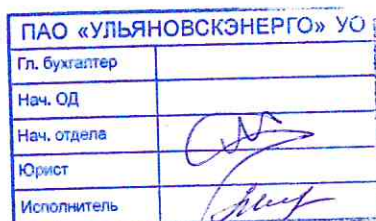 ПАО «УЛЬЯНОВСКЭНЕРГО» УО
Гл. бухгалтер
Нач. ОД
Нач. отдела
Юрист
Исполнитель